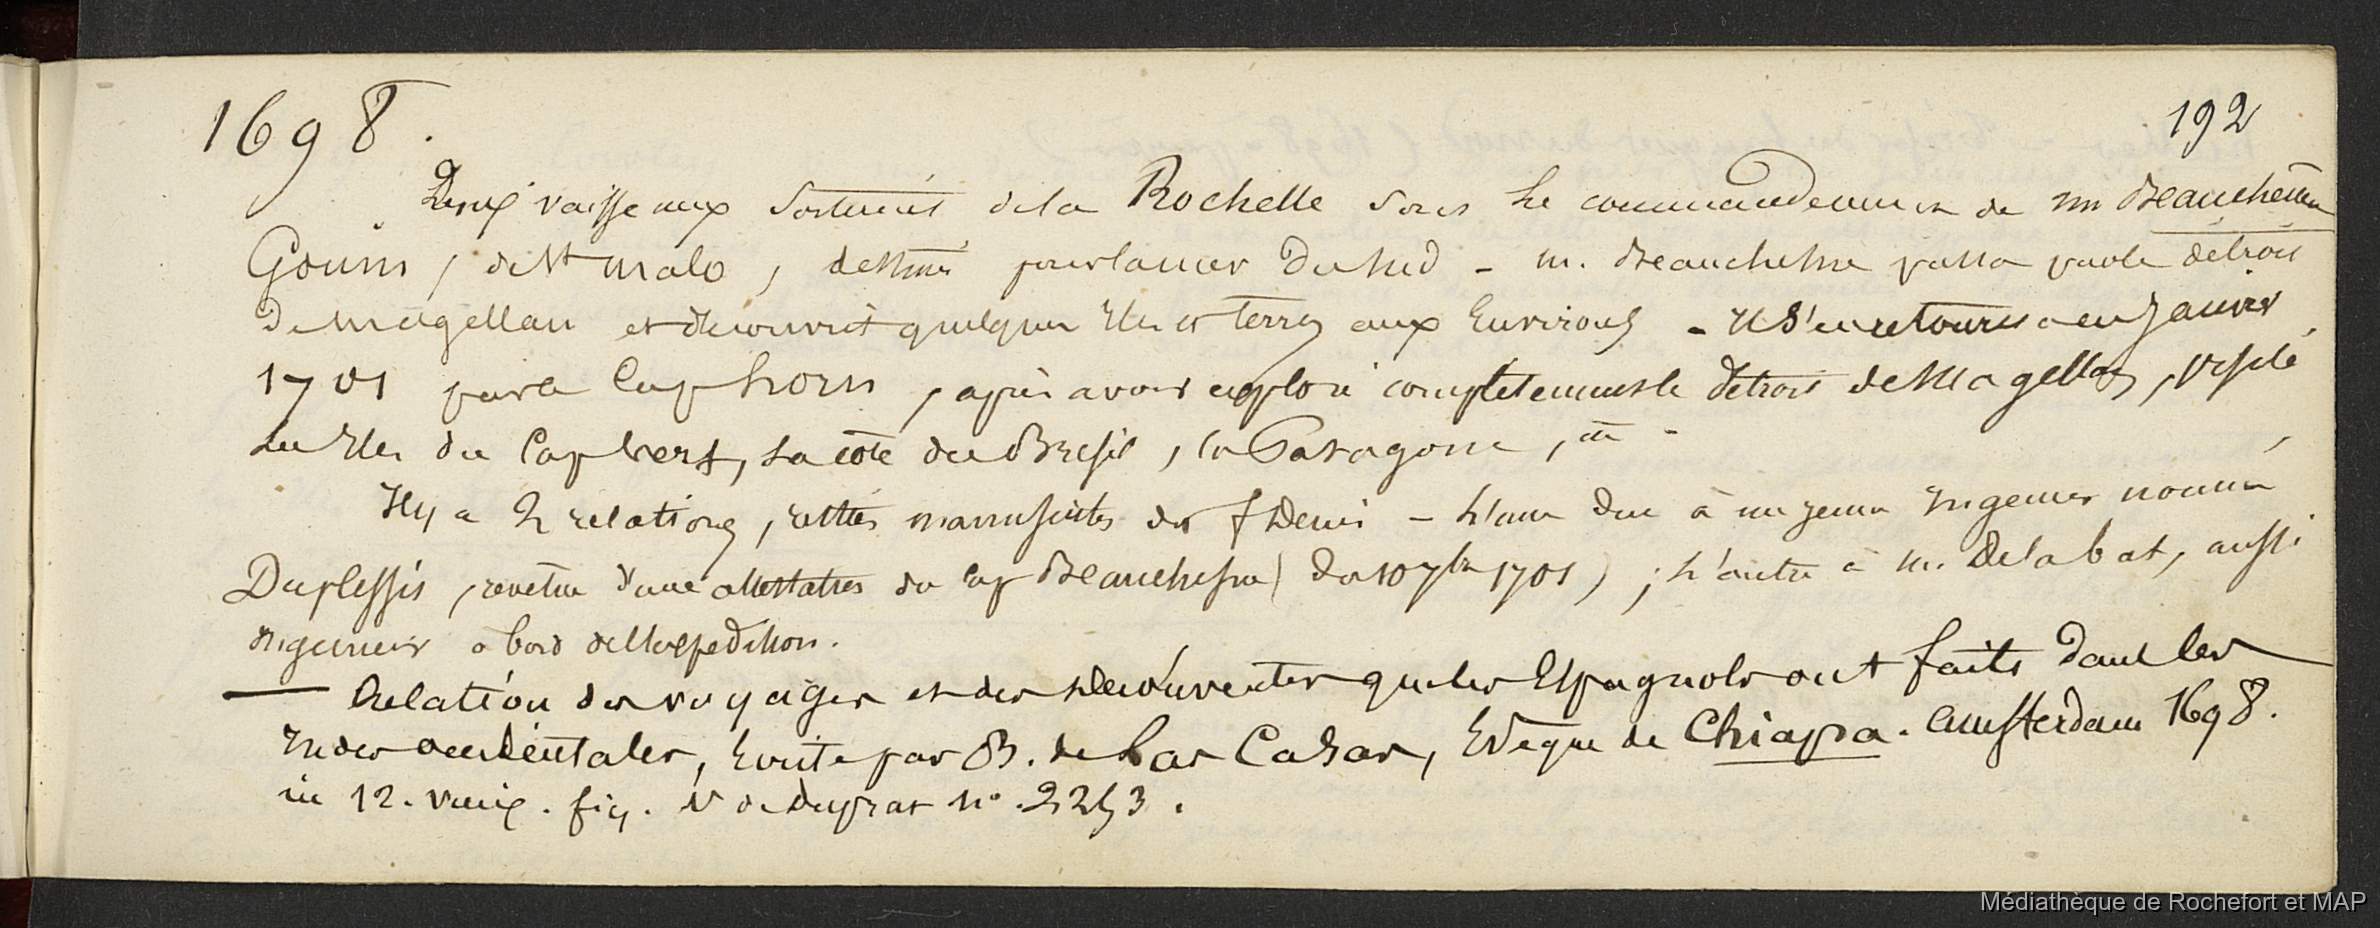 1698.
192
Deux vaisseaux sortirent de la Rochelle sous le commandement de mr Beauchesne
Gouin, de St malo, destinés pour la mer du sud - m. Beauchesne passa par le detroit
De magellan et découvrit quelques Iles et Terres aux Environs - Il s'en retourna en Janvier
1701 par le Cap horn, après avoir exploré complètement le détroit de Magellan, visité
Les Iles du Cap Vert, La côte du Bresil, la Patagonie, etc -
Il y a 2 relations, restées manuscrites de f Denis - L'une due à un jeune Ingenieur nommé
Duplessis, revetue d'une attestation du Cap Beauchesne (du 10 7bre 1701) ; L'autre à m. Delabat, aussi
ingenieur à bord de l'expedition.
— Relation des voyages et des Découvertes que les Espagnols ont faits dans les
Indes occidentales, Ecrite par B. de Las Casas, Evêque de Chiapa. Amsterdam 1698.
in 12. fig. Duprat n° 2253.
Médiathèque de Rochefort et MAP